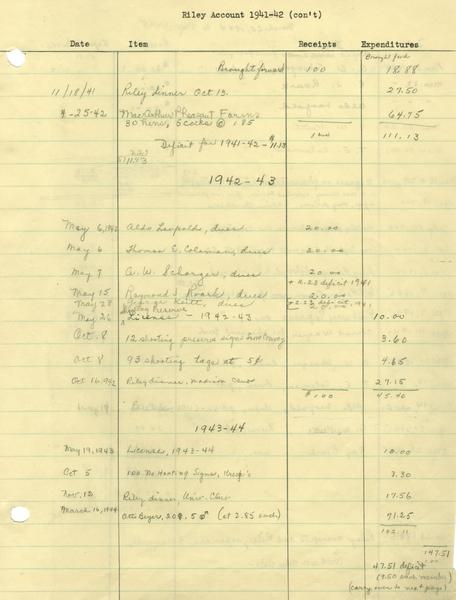 Riley Account 1941-42 (con't)
Date Item Receipts Expenditures
Brought forward 100 18.88
11/18/41 Riley dinner Oct 13. 27.50
4-25-42 MacArthur Pheasant Farms 64.75
30 hens, 5 cocks @ 1.85
111.13
Deficit for 1941-42 - $11.13
1942-43
May 6, 1942 Aldo Leopold, dues 20.00
May 6 Thomas E. Coleman, dues 20.00
May 7 A. W. Schorger, dues 20.00
+ 2.23 deficit 1941
May 15 Raymond J. Roark, dues 20.00
May 28 George Keitt, dues + 2.23 deficit, 1941
20.00
Shooting Preserve
May 26 License - 1942-43 10.00
Oct. 8 12 shooting preserve signs 3.60
Oct 8 93 shooting tags at 5¢ 4.65
Oct 16, 942 Riley dinner, Madison Club 27.15
$100 45.40
1943-44
May 19, 1943 License, 1943-44 10.00
Oct 5 100 No Hunting Signs, 3.30
Nov. 12 Riley dinner, Univ. Club 17.56
March 16, 1944 Otto Beyer, 20♀, 5♂ (at 2.85 each) 71.25
102.11
147.51
47.51 deficit
(9.50 each member)
(carry over to next page)